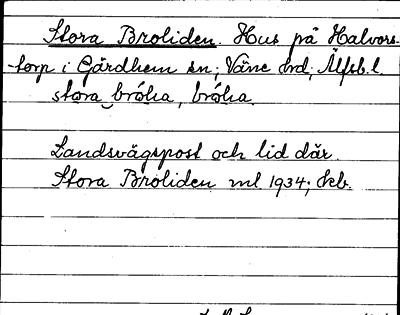 Stora Broliden. Hus på Halvors-
torp i Gärdhem sn; Väne hd; Älfsb. l.
stora bróḷia, bróḷia.
Landsvägspost och lid där.
Stora Broliden ml 1934; Skb.